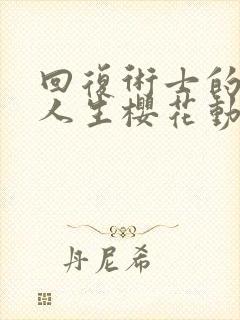 回復術士的
人生櫻花動
丹尼希